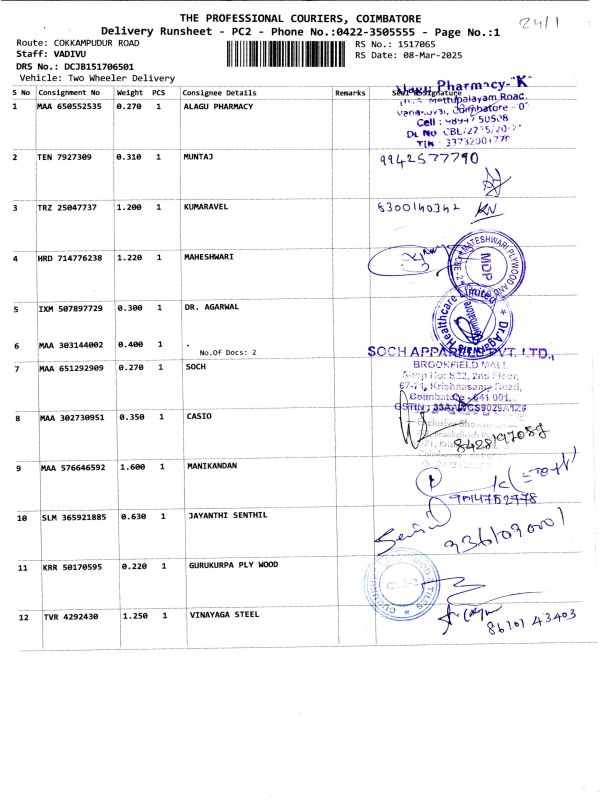 THE PROFESSIONAL COURIERS, COIMBATORE
24/1
Delivery Runsheet - PC2 - Phone No.:0422-3505555 - Page No.:1
Route: COKKAMPUDUR ROAD
RS No.: 1517065
Staff: VADIVU
RS Date: 08-Mar-2025
DRS No.: DCJB151706501
Vehicle: Two Wheeler Delivery
S No Consignment No Weight PCS Consignee Details Remarks
1 MAA 650552535 0.270 1 ALAGU PHARMACY
Pharmacy-"K"
Mettupalayam Road.
Coimbatore
Cell :
2 TEN 7927309 0.310 1 MUNTAJ 9942577790
3 TRZ 25047737 1.200 1 KUMARAVEL 8300140342 KN
4 HRD 714776238 1.220 1 MAHESHWARI
MATESHWARI PLYWOOD AND
MDP
5 IXM 507897729 0.300 1 DR. AGARWAL
Dr.Agarwal's Healthcare Limited
Coimbatore
6 MAA 303144002 0.400 1 .
No.Of Docs: 2
SOCH APPARELS PVT. LTD.,
7 MAA 651292909 0.270 1 SOCH
BROOKFIELD MALL
Shop No: S22, 2nd Floor,
67-71, Krishnasamy Road,
Coimbatore - 641 001.
8 MAA 302730951 0.350 1 CASIO
Exclusive Showroom
8428197089
9 MAA 576646592 1.600 1 MANIKANDAN
10 SLM 365921885 0.630 1 JAYANTHI SENTHIL
9361090001
11 KRR 50170595 0.220 1 GURUKURPA PLY WOOD
12 TVR 4292430 1.250 1 VINAYAGA STEEL
86101 43403